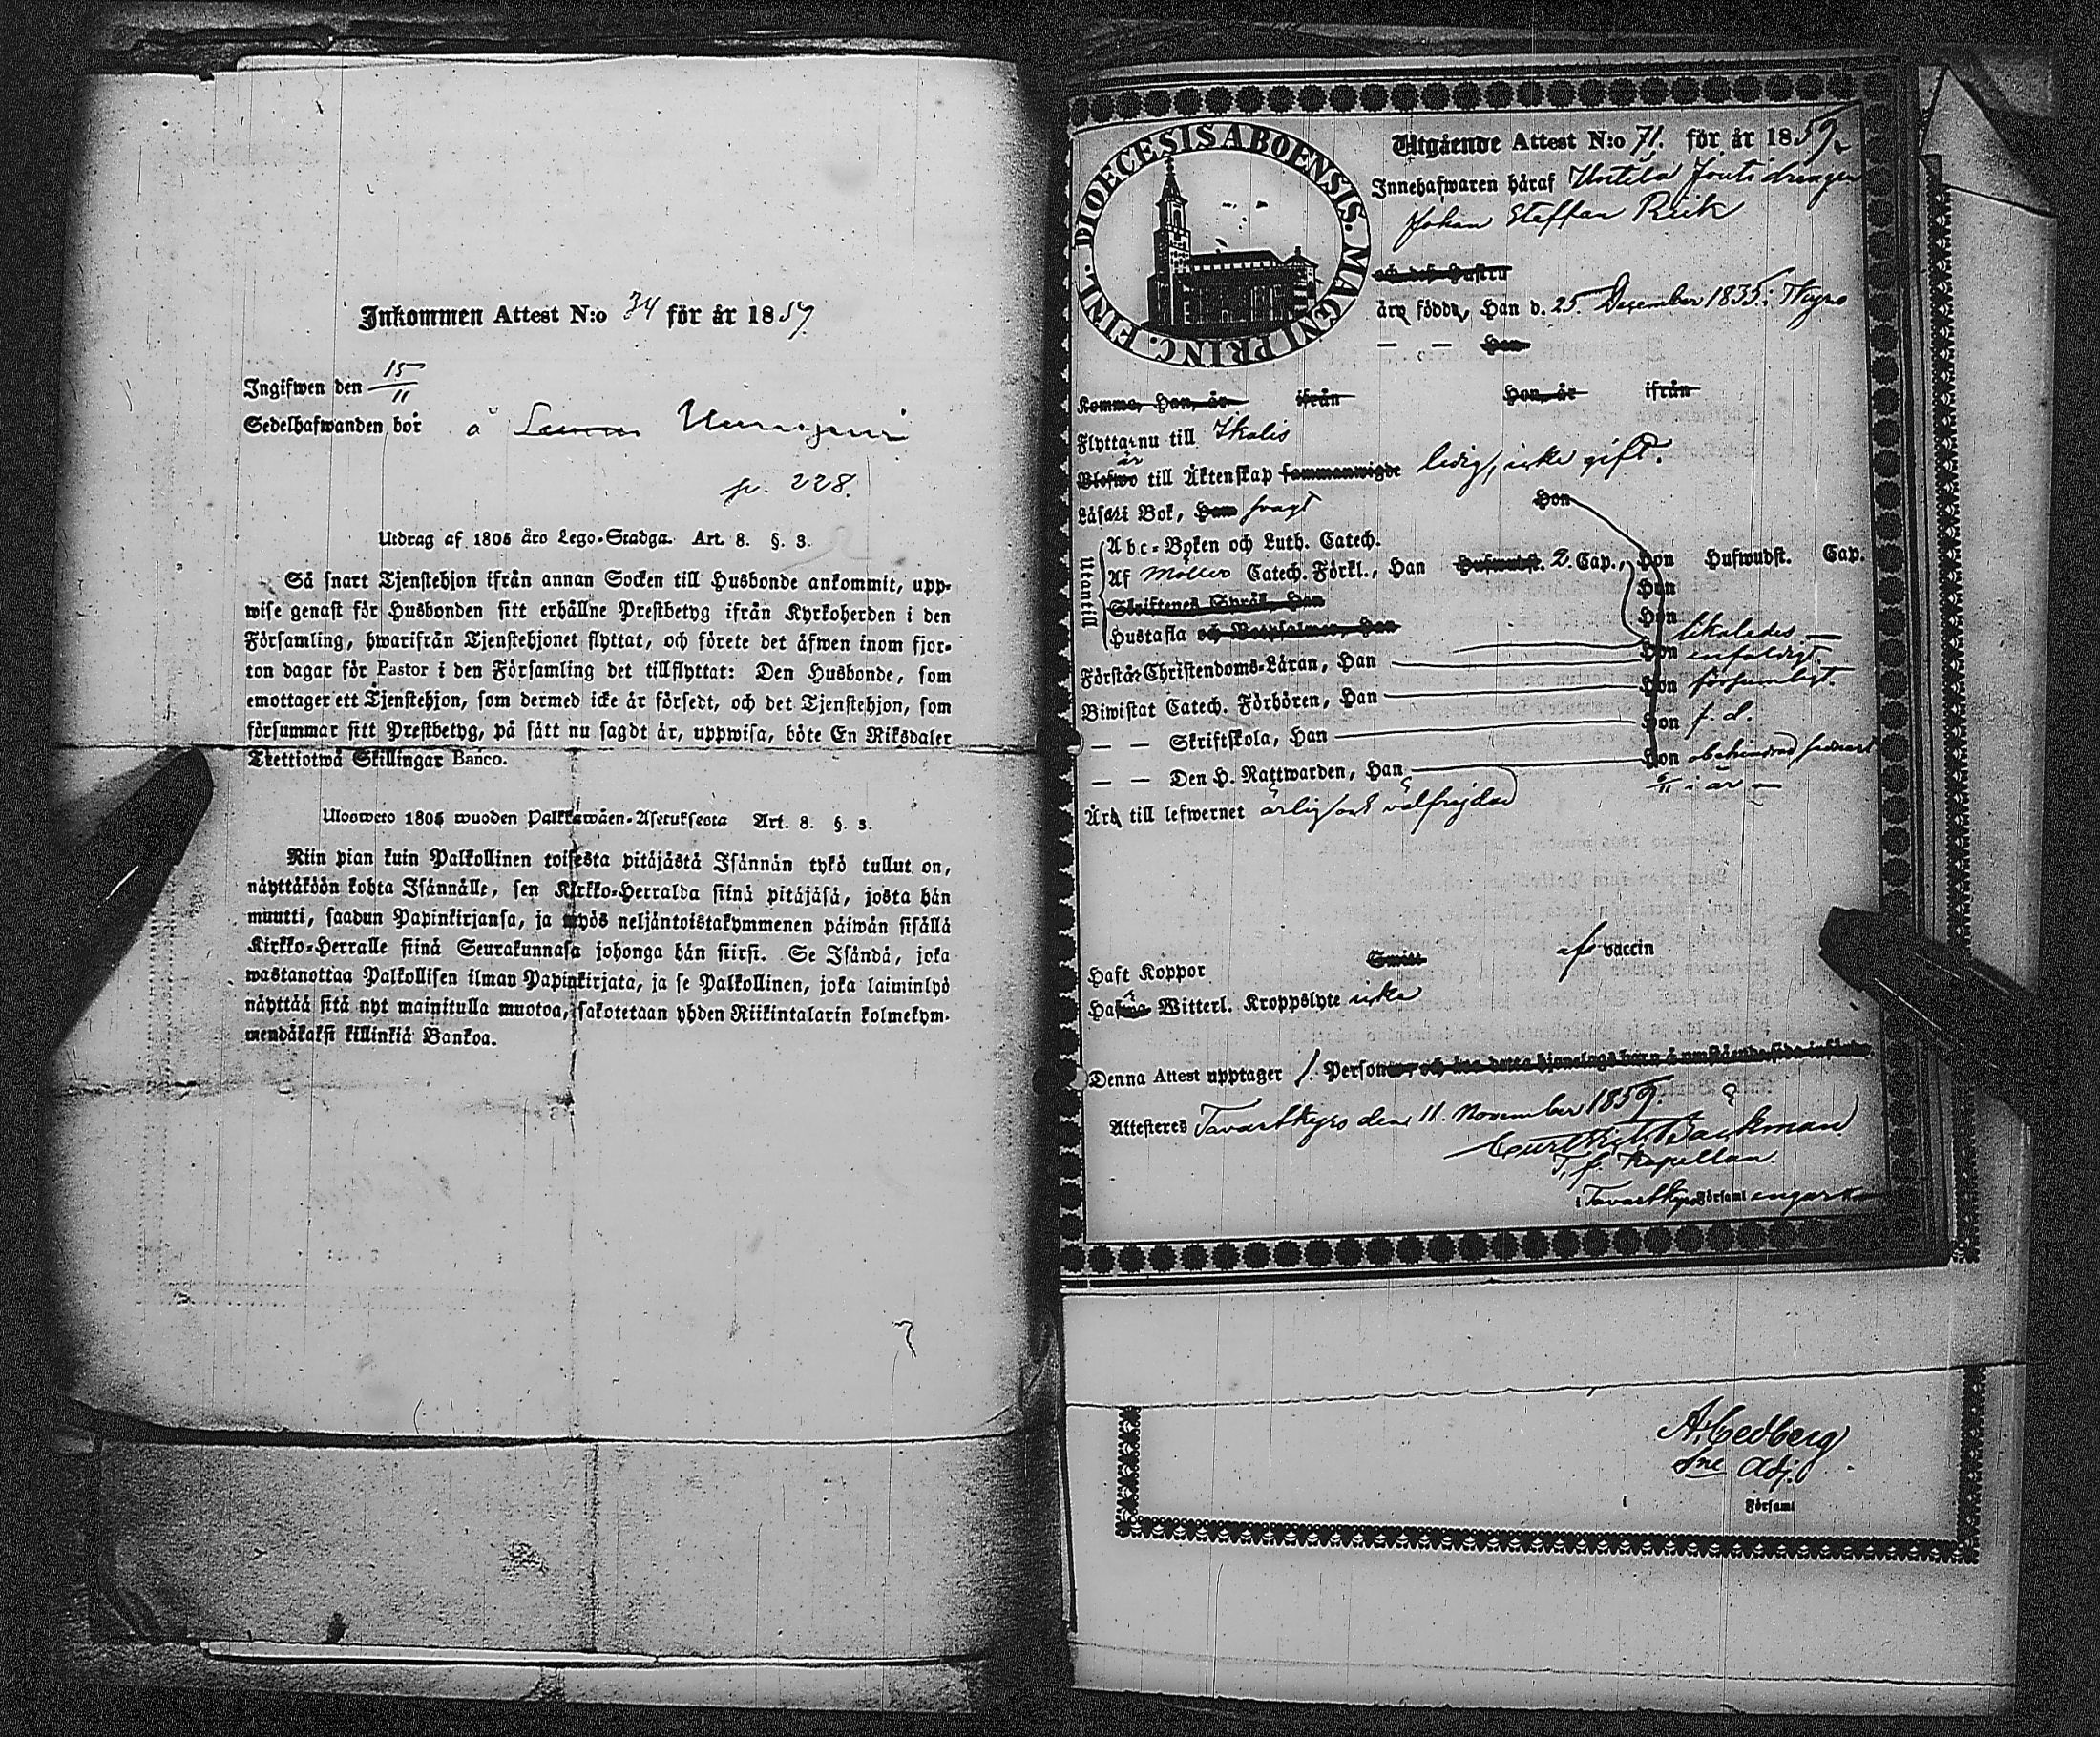 Inkommen Attest N:o 34 för år 1859.
Ingifwen den 15/11
Sedelhafwanden bor å
p. 228.
Utdrag af 1805 års Lego-Stadga. Art. 8. §. 3.
Så snart Tjenstehjon ifrån annan Socken till Husbonde ankommit, upp-
wise genast för Husbonden sitt erhållne Prestbetyg ifrån Kyrkoherden i den
Församling, hwarifrån Tjenstehjonet flyttat, och förete det äfwen inom fjor-
ton dagar för Pastor i den Församling det tillflyttat: Den Husbonde, som
emottager ett Tjenstehjon, som dermed icke är försedt, och det Tjenstehjon, som
försummar sitt Prestbetyg, på sätt nu sagdt är, uppwisa, böte En Riksdaler
Trettiotwå Skillingar Banco.
Ulosweto 1805 wuoden Palkkawäen-Asetuksesta Art. 8. §. 3.
Niin pian kuin Palkollinen toisesta pitäjästä Isännän tykö tullut on,
näyttäköön kohta Isännälle, sen Kirkko-Herralda siinä pitäjäsä, josta hän
muutti, saadun Papinkirjansa, ja myös neljäntoistakymmenen päiwän sisällä
Kirkko-Herralle siinä Seurakunnasa johonga hän siirsi. Se Isändä, joka
wastanottaa Palkollisen ilman Papinkirjata, ja se Palkollinen, joka laiminlyö
näyttää sitä nyt mainitulla muotoa, sakotetaan yhden Riikintalarin kolmekym-
mendäkaksi killinkiä Bankoa.
DIOECESIS ABOENSIS. MAGNI PRINC. FINL.
Utgående Attest N:o 71. för år 1859.
Innehafwaren häraf
Johan Staffan
och dess hustru
äro födde, Han d. 25. December 1835 i Kyro
— — Hon
Komma, Han, år ifrån Hon, år ifrån
Flytta nu till Ikalis
är
Blefwo till Äktenskap sammanwigde ledig, icke gift.
Läsa i Bok, Han svagt Hon
Utantill
Abc-Boken och Luth. Catech.
Af Möllers Catech. Förkl., Han Hufwudst. 2. Cap., Hon Hufwudst. Cap.
Skriftenes Språk, Han Hon
Hustafla och Botpsalmer, Han Hon likaledes —
Förstår Christendoms-Läran, Han Hon enfaldigt
Biwistat Catech. Förhören, Han Hon försumligt.
— — Skriftskola, Han Hon f. d.
— — Den H. Nattwarden, Han Hon obehindrad
6/11 i år —
Äro till lefwernet ärlig och välfrejdad
Haft Koppor Smitt af vaccin
Hafwa Witterl. Kroppslyte icke
Denna Attest upptager 1. Personer och äro detta hjonelags barn å omstående sida införde.
Attesteres Tavastkyro den 11. November 1859.
Backman
T. f. Kapellan.
i Tavastkyro Församl
A. Cedberg
Adj.
i Församl